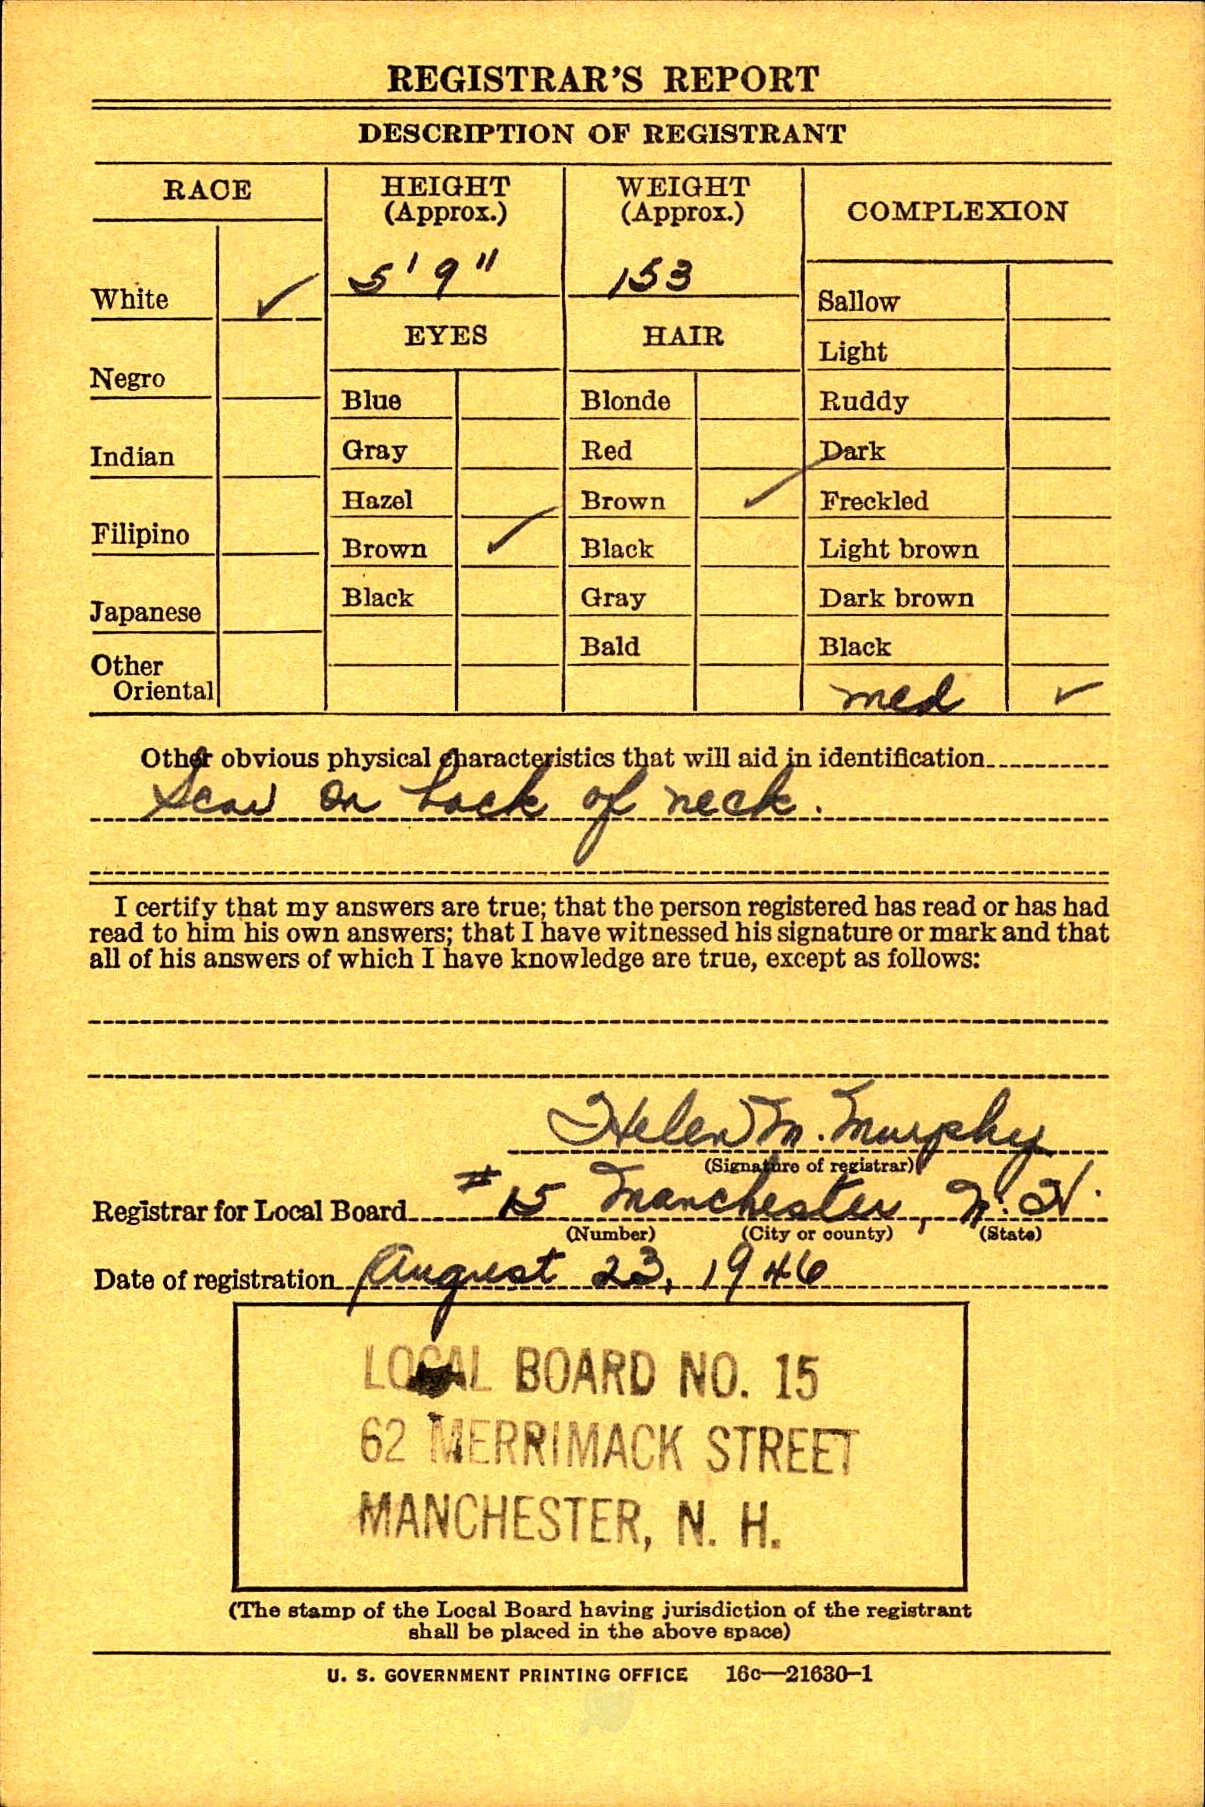 REGISTRAR'S REPORT
DESCRIPTION OF REGISTRANT
RACE
White ✓
Negro
Indian
Filipino
Japanese
Other
Oriental
HEIGHT
(Approx.)
5' 9"
WEIGHT
(Approx.)
153
EYES
Blue
Gray
Hazel
Brown ✓
Black
HAIR
Blonde
Red
Brown ✓
Black
Gray
Bald
COMPLEXION
Sallow
Light
Ruddy
Dark
Freckled
Light brown
Dark brown
Black
med ✓
Other obvious physical characteristics that will aid in identification
Scar on back of neck.
I certify that my answers are true; that the person registered has read or has had
read to him his own answers; that I have witnessed his signature or mark and that
all of his answers of which I have knowledge are true, except as follows:
Helen M. Murphy
(Signature of registrar)
Registrar for Local Board #15 Manchester, N.H.
(Number) (City or county) (State)
Date of registration August 23, 1946
LOCAL BOARD NO. 15
62 MERRIMACK STREET
MANCHESTER, N. H.
(The stamp of the Local Board having jurisdiction of the registrant
shall be placed in the above space)
U. S. GOVERNMENT PRINTING OFFICE 16c—21630-1